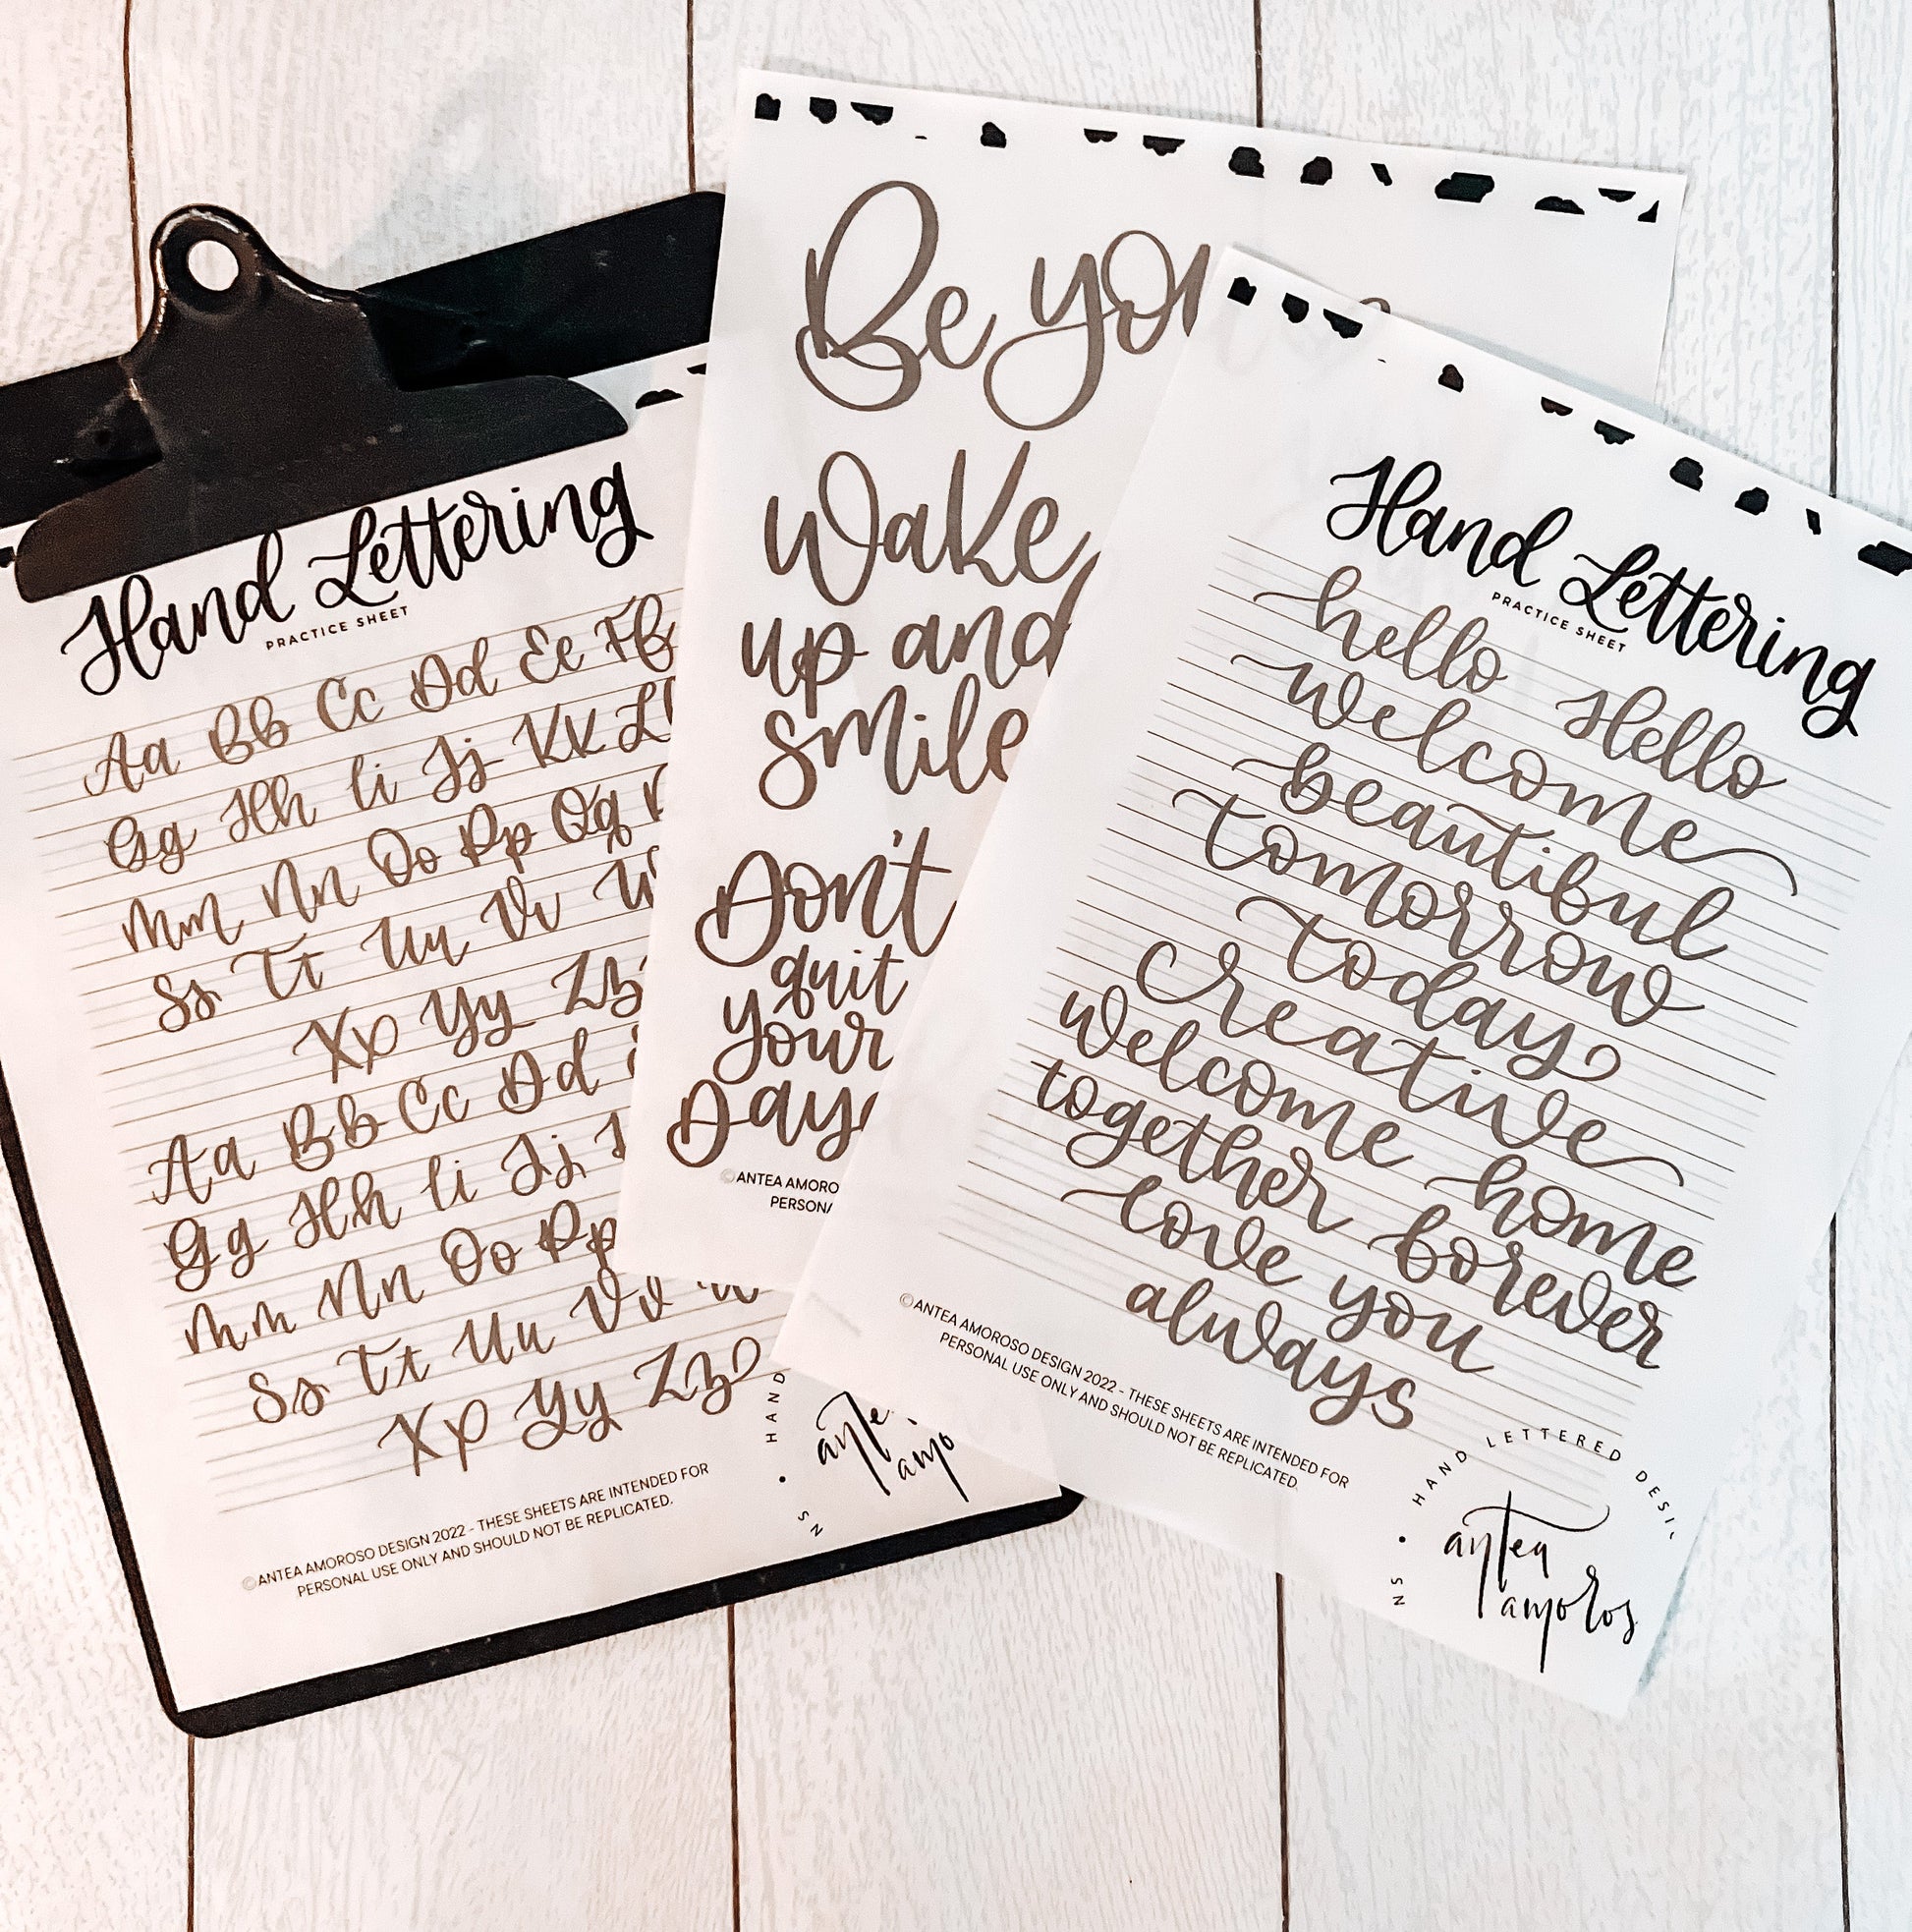 Hand Lettering
PRACTICE SHEET
Aa Bb Cc Dd Ee Ff
Gg Hh Ii Jj Kk Ll
Mm Nn Oo Pp Qq
Ss Tt Uu Vv
Xx Yy Zz
Aa Bb Cc Dd
Gg Hh Ii Jj
Mm Nn Oo Pp
Ss Tt Uu Vv
Xx Yy Zz
©ANTEA AMOROSO DESIGN 2022 - THESE SHEETS ARE INTENDED FOR
PERSONAL USE ONLY AND SHOULD NOT BE REPLICATED.
HAND
NS
Be you
Wake
up and
smile
Don't
quit
your
Day
©ANTEA AMORO
PERSONA
Hand Lettering
PRACTICE SHEET
hello Hello
welcome
beautiful
tomorrow
today
creative
Welcome home
together forever
love you
always
©ANTEA AMOROSO DESIGN 2022 - THESE SHEETS ARE INTENDED FOR
PERSONAL USE ONLY AND SHOULD NOT BE REPLICATED.
HAND LETTERED DESI
NS
antea
amoros